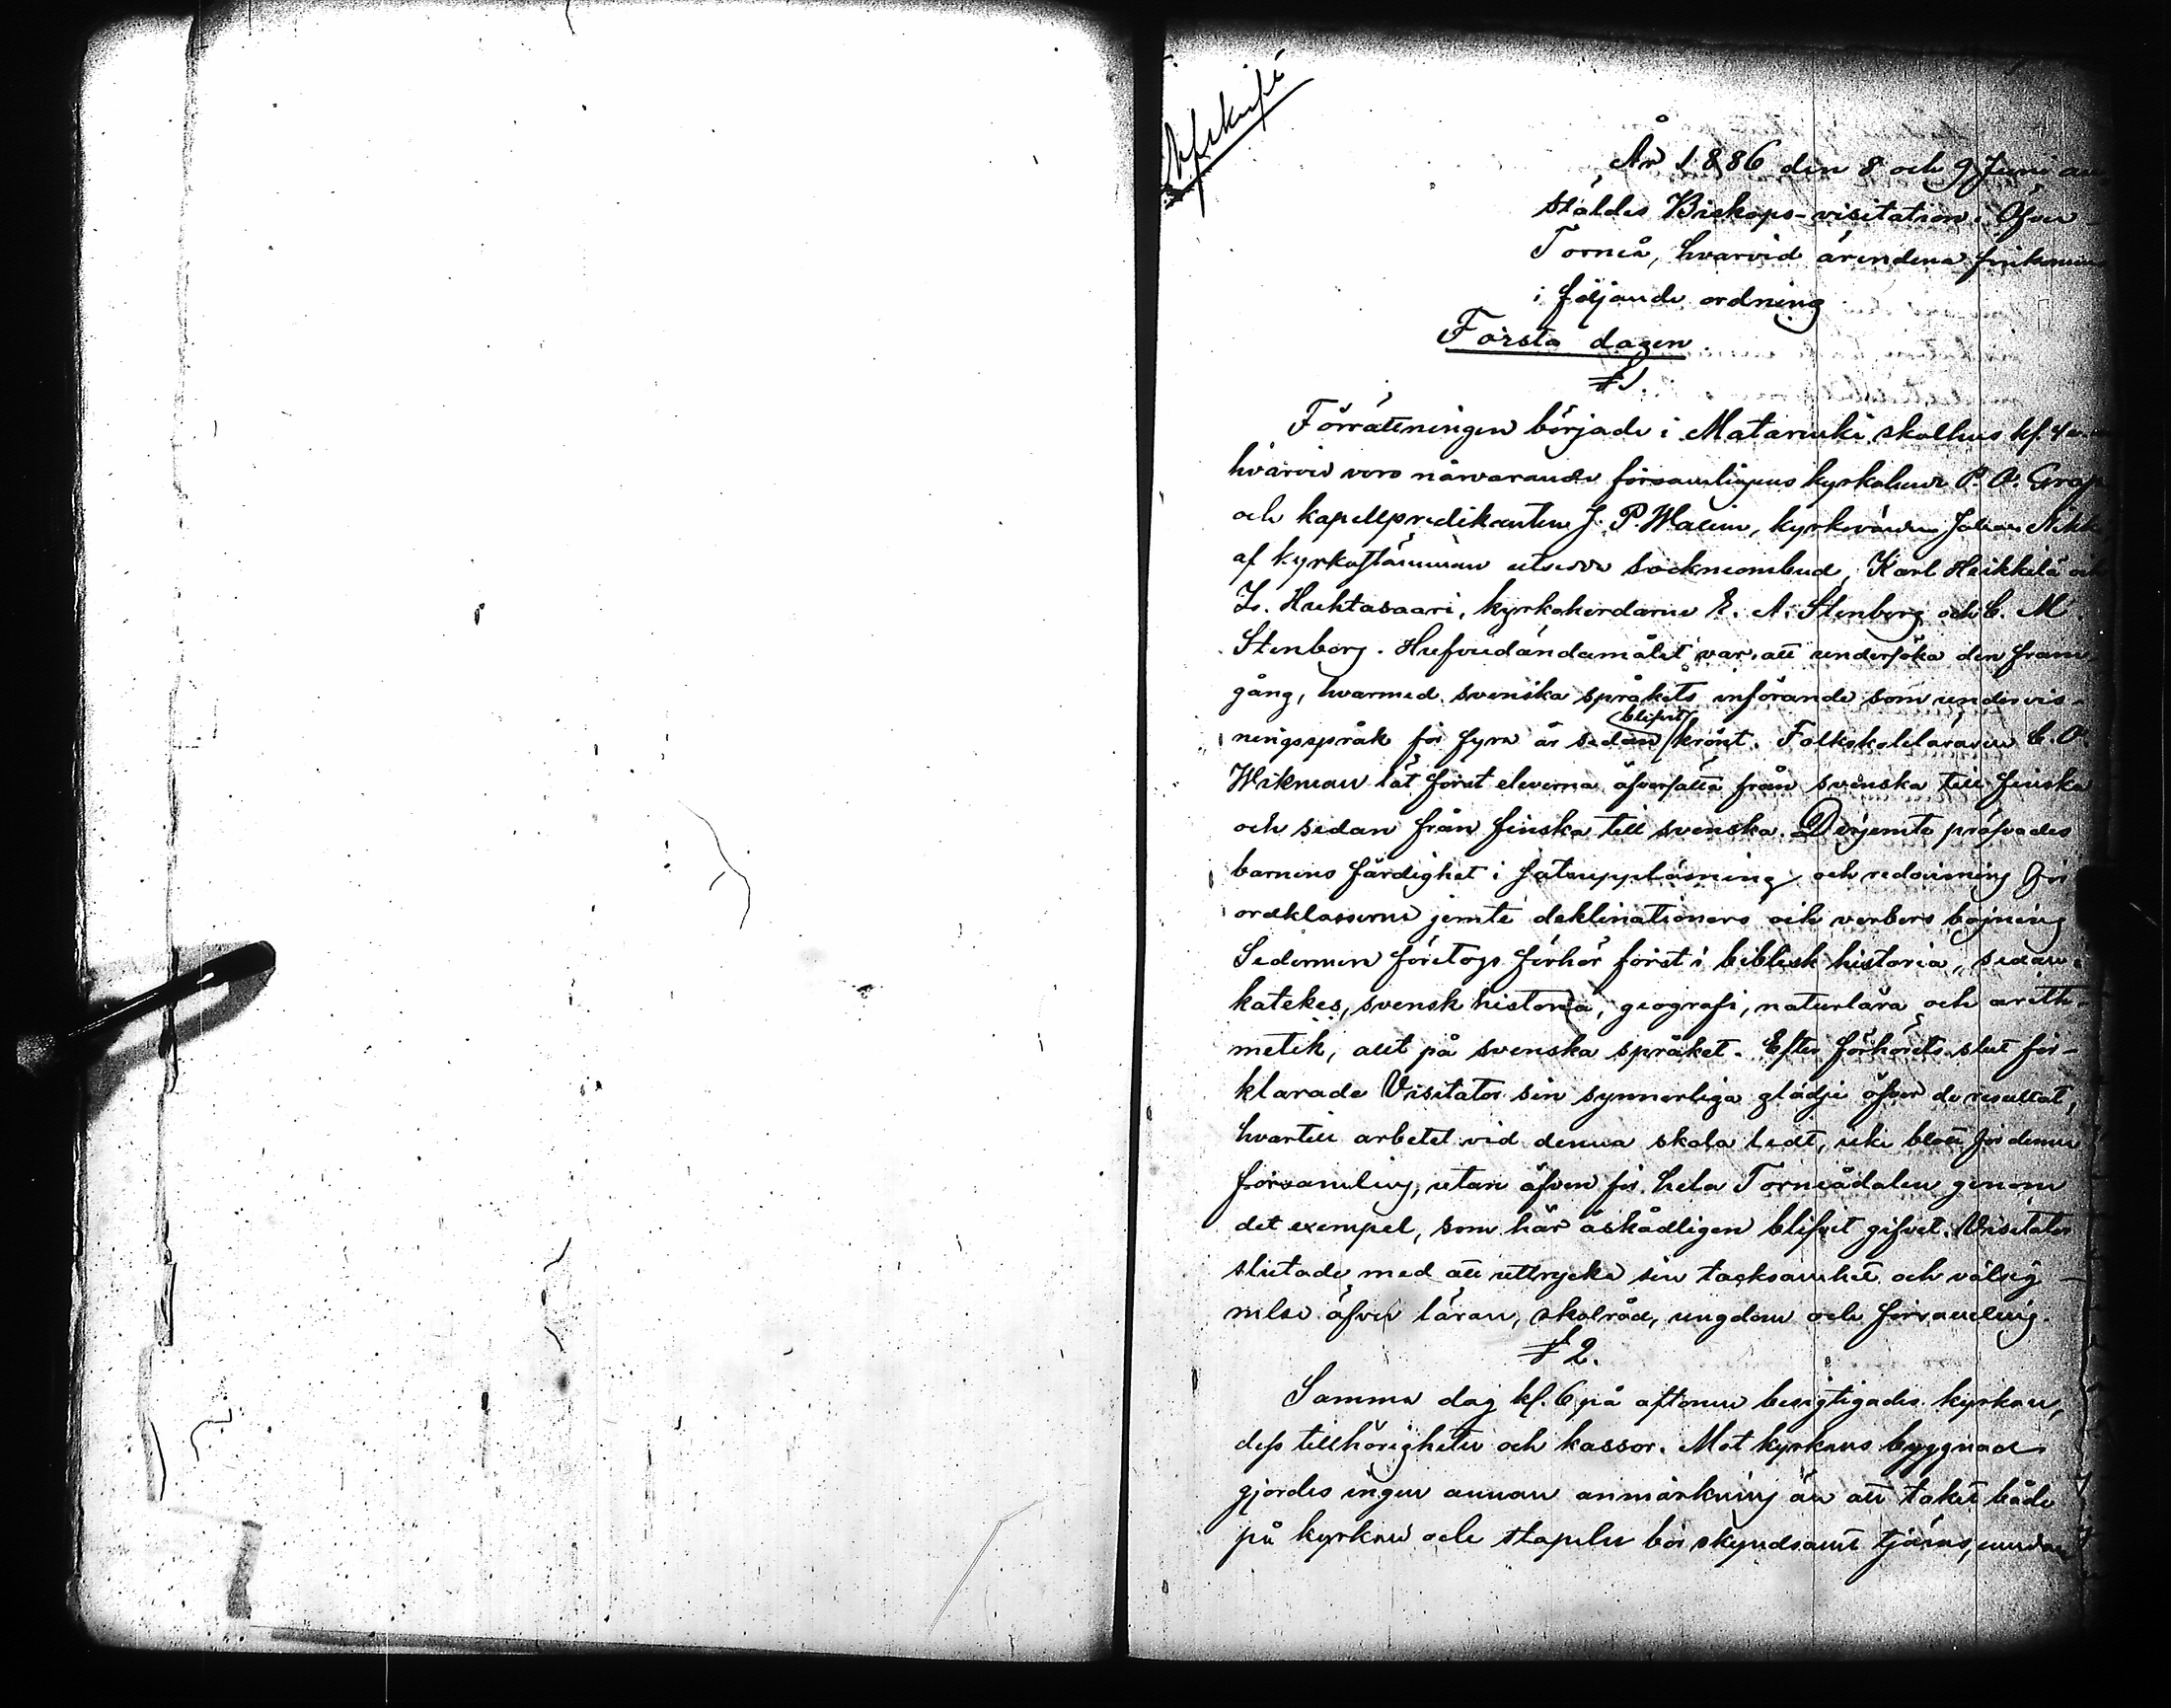 Afskrift
År 1886 den 8 och 9 Juni an-
ställdes Biskops-visitation i Öfver-
Torneå, hvarvid ärendena förekommo
i följande ordning
Första dagen.
§ 1.
Förrättningen började i Matarenki skolhus kl. 4
hvarvid voro närvarande församlingens kyrkoherde P. O. Grape
och kapellpredikanten J. P. Wallin, kyrkvärden Johan
af kyrkostämman utsedde sockneombud, Karl Heikkilä och
Z. Huhtasaari, kyrkoherdarne E. A. Stenberg och C. M.
Stenborg. Hufvudändamålet var att undersöka den fram-
gång, hvarmed svenska språkets införande som undervis-
ningsspråk för fyra år sedan blifvit krönt. Folkskolelararen C. O.
Wikman lät först eleverna öfversätta från svenska till finska
och sedan från finska till svenska. Derjemte pröfvades
barnens färdighet i satsupplösning och redovisning för
ordklasserne jemte deklinationers och verbers böjning
Sedermera företogs förhör först i biblisk historia, sedan i
katekes, svensk historia, geografi, naturlära och arith-
metik, allt på svenska språket. Efter förhörets slut för-
klarade Visitator sin synnerliga glädje öfver de resultat,
hvartill arbetet vid denna skola ledt, icke blott för denna
församling, utan äfven för hela Torneådalen genom
det exempel, som här åskådligen blifvit gifvet. Visitator
slutade med att uttrycka sin tacksamhet och välsig-
nelse öfver läraren, skolråd, ungdom och församling.
§ 2.
Samma dag kl. 6 på aftonen besigtigades kyrkan,
dess tillhörigheter och kassor. Mot kyrkans byggnad
gjordes ingen annan anmärkning än att taket både
på kyrkan och stapeln bör skyndsamt tjäras, medan